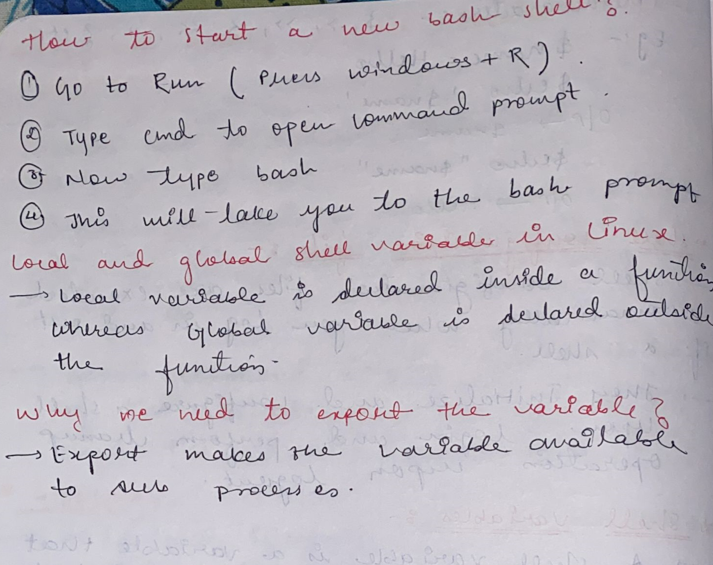 How to start a new bash shell?
① Go to Run (Press windows + R).
② Type cmd to open command prompt.
③ Now type bash
④ This will take you to the bash prompt
Local and global shell variable in Linux.
→ Local variable is declared inside a function
whereas Global variable is declared outside
the function.
Why we need to export the variable?
→ Export makes the variable available
to sub processes.